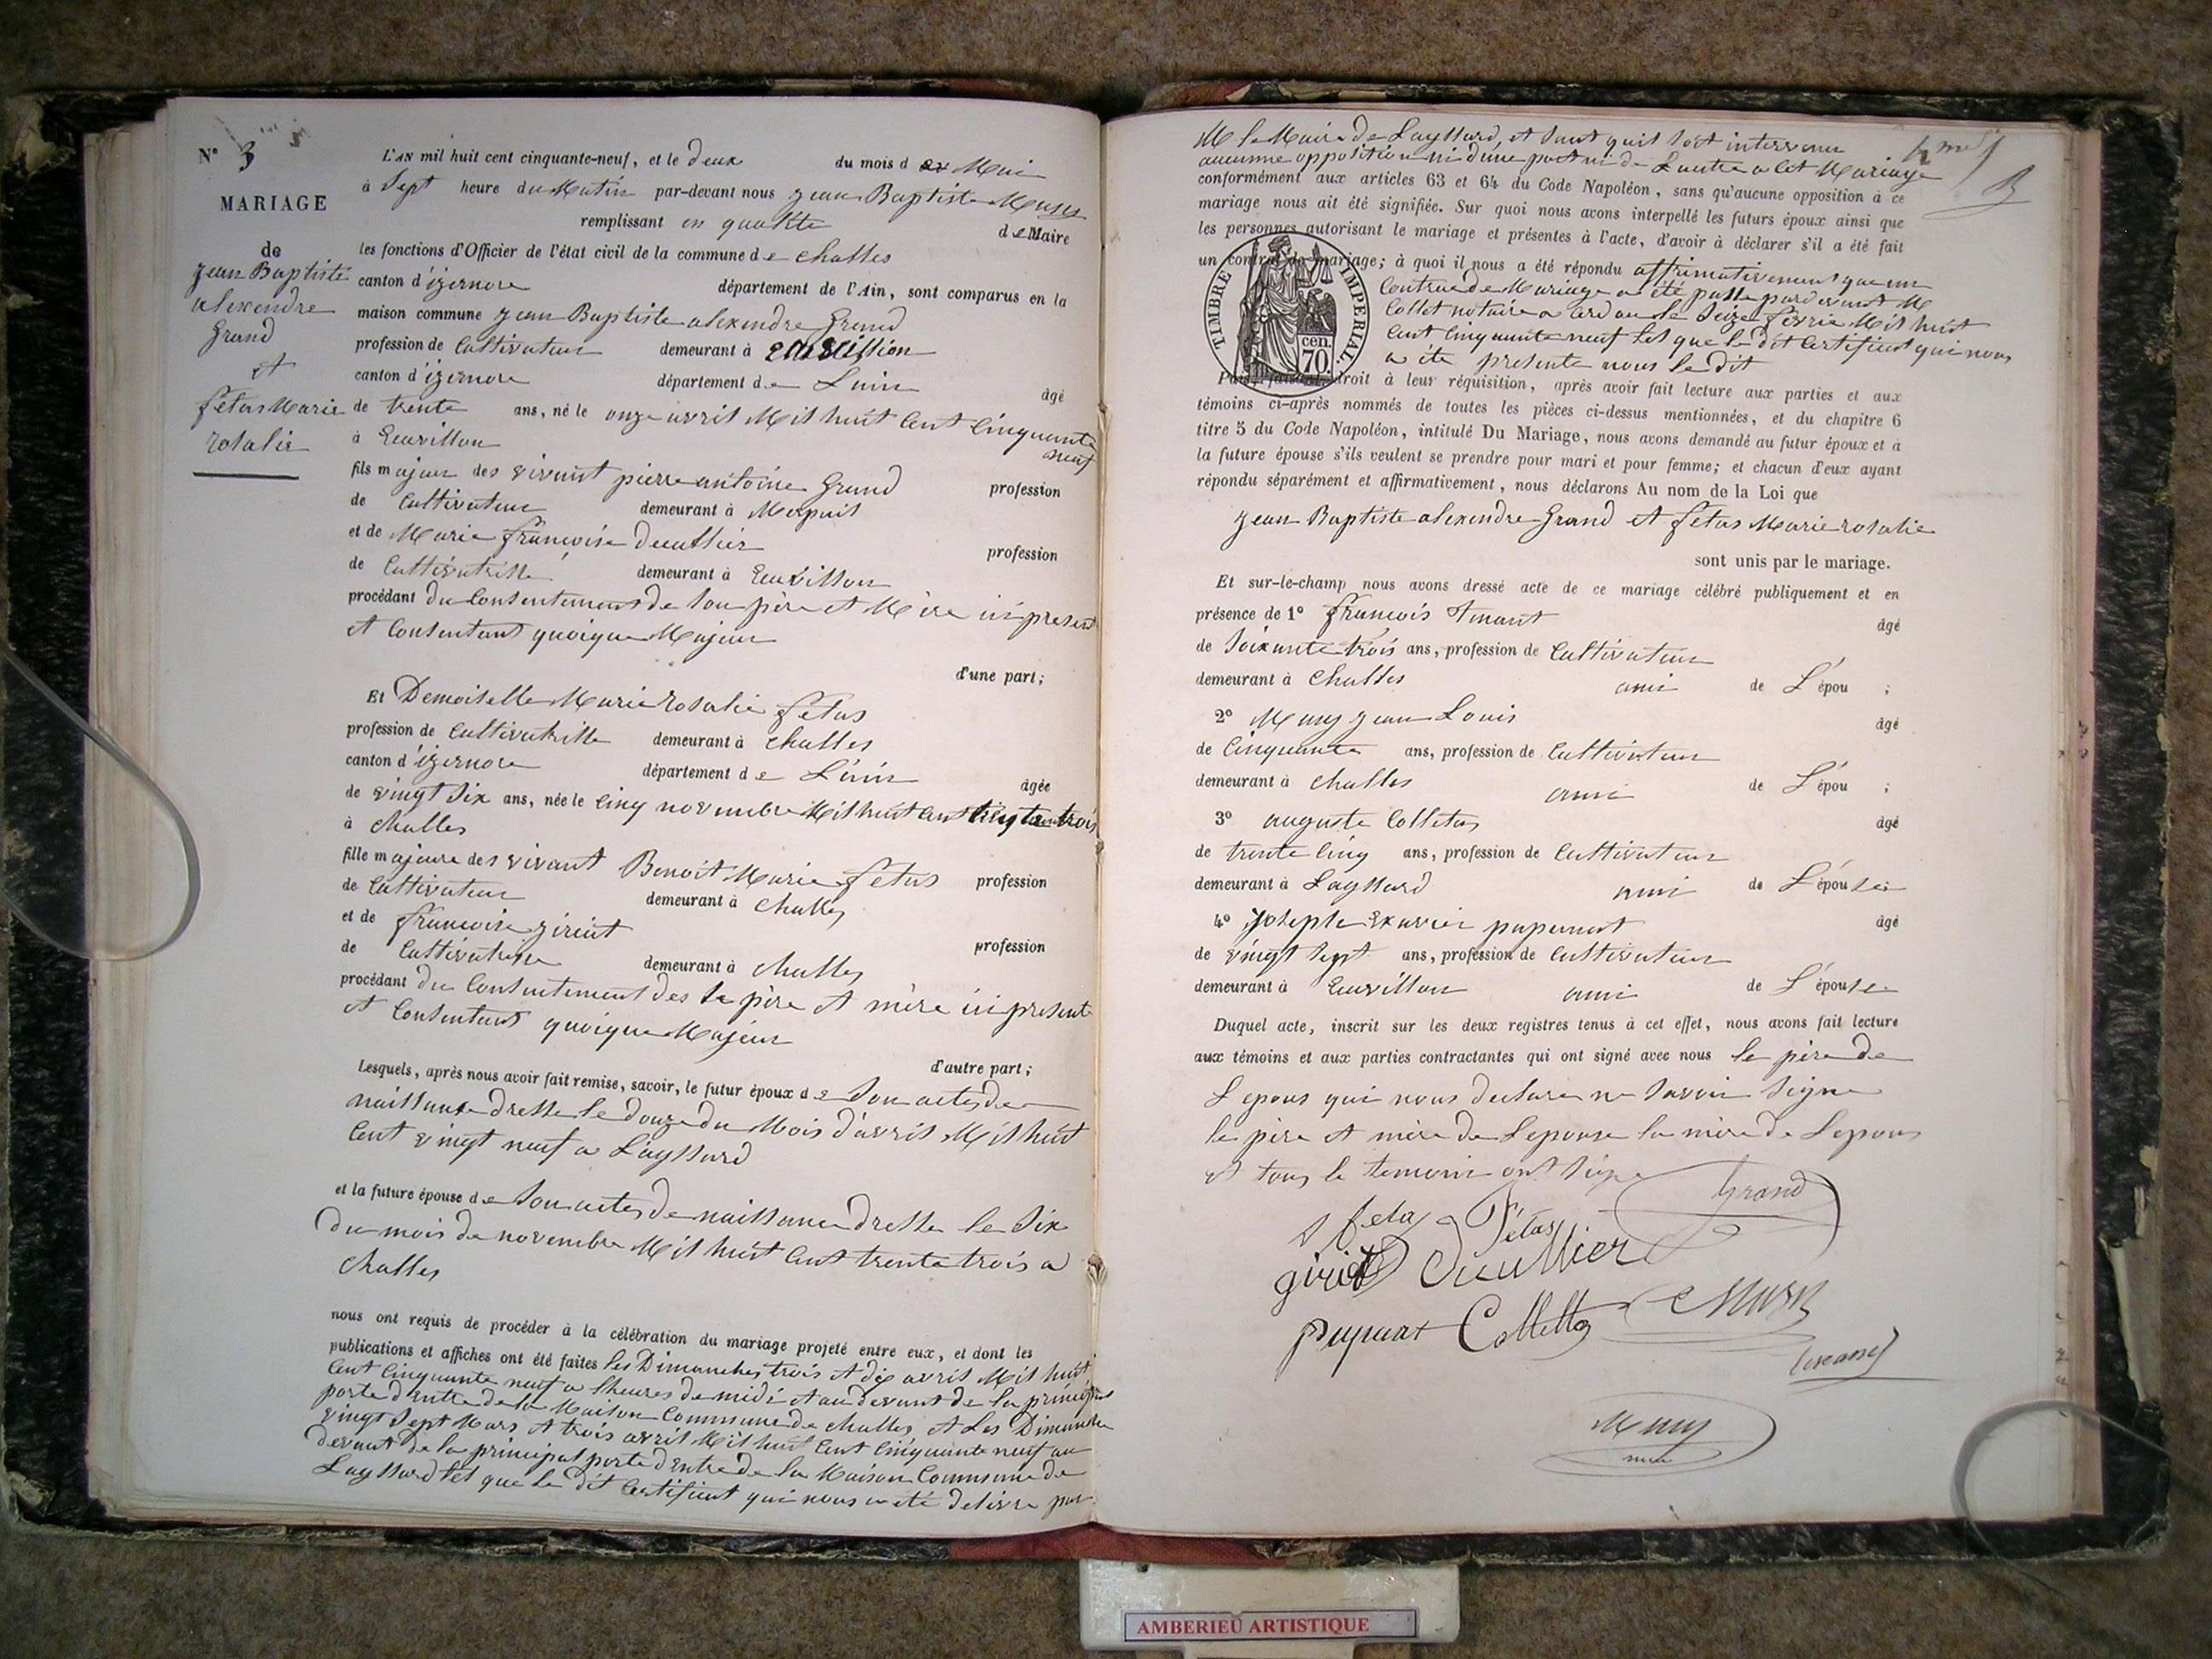 N° 3
MARIAGE
de
jean Baptiste
alexendre
Grand
et
fetas Marie
rosalie
L'AN mil huit cent cinquante-neuf, et le deux du mois d Mai
à Sept heure du Matin par-devant nous jean Baptiste
remplissant en qualite de Maire
les fonctions d'Officier de l'état civil de la commune de challes
canton d'izernore département de l'Ain, sont comparus en la
maison commune jean Baptiste alexendre Grand
profession de Cultivateur demeurant à
canton d'izernore département de Lain âgé
de trente ans, né le onze avril Mil huit Cent Cinquante
neuf
à
fils majeur des vivant pierre antoine Grand profession
de Cultivateur demeurant à
et de Marie françoise profession
de Cultivatrisse demeurant à
procédant du Consentement de Son père et Mère ici present
et Consentant quoique Majeur
d'une part;
Et Demoiselle Marie rosalie fetas
profession de Cultivatrisse demeurant à challes
canton d'izernore département de Lain âgée
de vingt Six ans, née le Cinq novembre Mil huit Cent trente trois
à challes
fille majeure des vivant Benoit Marie fetas profession
de Cultivateur demeurant à challes
et de francoise giriat profession
de Cultivatrisse demeurant à challes
procédant du Consentement des père et mère ici present
et Consentant quoique Majeur
d'autre part;
Lesquels, après nous avoir fait remise, savoir, le futur époux de Son actes de
naissance dresse le douze du Mois d'avril Mil huit
Cent vingt neuf a Layssard
et la future épouse de Son actes de naissance dresse le Six
du mois de novembre Mil huit Cent trente trois a
challes
nous ont requis de procéder à la célébration du mariage projeté entre eux, et dont les
publications et affiches ont été faites les Dimanches trois et dix avril Mil huit
Cent Cinquante neuf a lheures de midi et au devant de la principal
porte d'entre de la Maison Commune de challes et Les Dimanche
vingt Sept Mars et trois avril Mil huit Cent Cinquante neuf au
devant de la principal porte d'entre de la Maison Commune de
Layssard tel que le dit Certificat qui nous a été delivre par
M le Maire de Layssard, et Sans quil Soit intervenu
aucunne opposition ni dune part ni de Lautre a Cet Mariage
conformément aux articles 63 et 64 du Code Napoléon, sans qu'aucune opposition à ce
mariage nous ait été signifiée. Sur quoi nous avons interpellé les futurs époux ainsi que
les personnes autorisant le mariage et présentes à l'acte, d'avoir à déclarer s'il a été fait
un contrat de mariage; à quoi il nous a été répondu affirmativement que un
Contrat de Mariage a été passe pardevant Me
Collet notaire a Cerdon le Seize fevrie Mil huit
Cent Cinquante neuf tel que le dit Certificat qui nous
a ete presente nous le dit
TIMBRE IMPERIAL.
cen.
70.
Puis, faisant droit à leur réquisition, après avoir fait lecture aux parties et aux
témoins ci-après nommés de toutes les pièces ci-dessus mentionnées, et du chapitre 6
titre 5 du Code Napoléon, intitulé Du Mariage, nous avons demandé au futur époux et à
la future épouse s'ils veulent se prendre pour mari et pour femme; et chacun d'eux ayant
répondu séparément et affirmativement, nous déclarons Au nom de la Loi que
jean Baptiste alexendre Grand et fetas Marie rosalie
sont unis par le mariage.
Et sur-le-champ nous avons dressé acte de ce mariage célébré publiquement et en
présence de 1° francois âgé
de Soixante trois ans, profession de Cultivateur
demeurant à Challes ami de L'épou ;
2° Mury jean Louis âgé
de Cinquante ans, profession de Cultivateur
demeurant à challes ami de L'épou ;
3° auguste Colletas âgé
de trente Cinq ans, profession de Cultivateur
demeurant à Layssard ami de L'épouse
4° Joseph papunat âgé
de vingt Sept ans, profession de Cultivateur
demeurant à ami de L'épouse
Duquel acte, inscrit sur les deux registres tenus à cet effet, nous avons fait lecture
aux témoins et aux parties contractantes qui ont signé avec nous le père de
L epous qui nous declare ne Savoir Signe
le père et mère de Lepouse la mère de Lepous
et tous le temoin ont Signe
fetas Fétas Grand
giriat
papunat Collettas
Mury